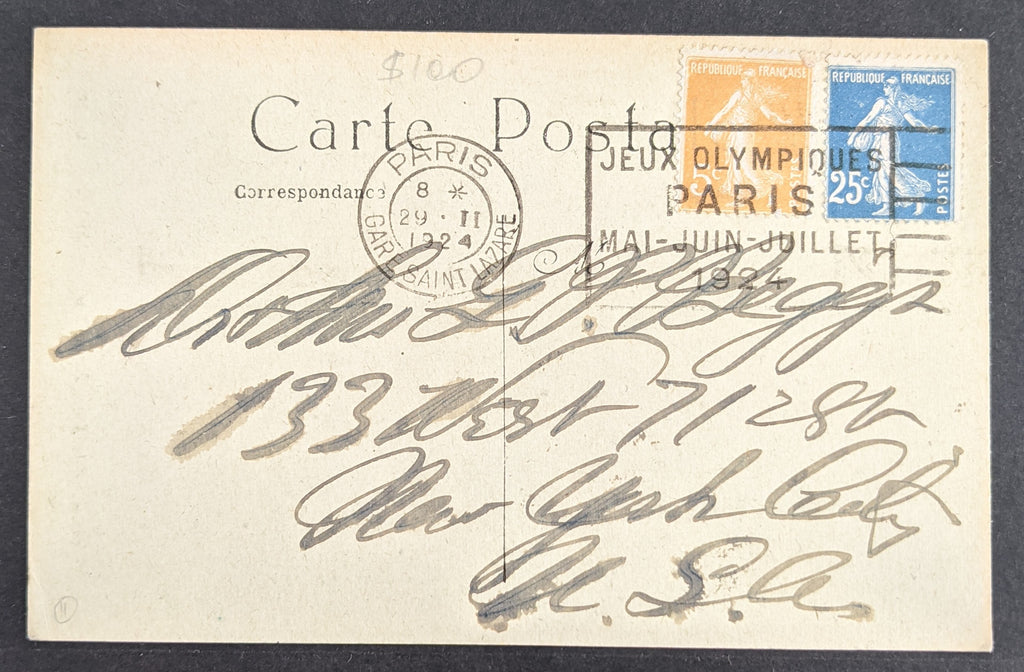 $100
Carte Posta
Correspondance
PARIS
8 *
29 · II
1924
GARE SAINT LAZARE
REPUBLIQUE FRANÇAISE
5c
POSTES
REPUBLIQUE FRANÇAISE
25c
POSTES
JEUX OLYMPIQUES
PARIS
MAI-JUIN-JUILLET
1924
Arthur
133 West 71 st
New York City
U. S. A.
11